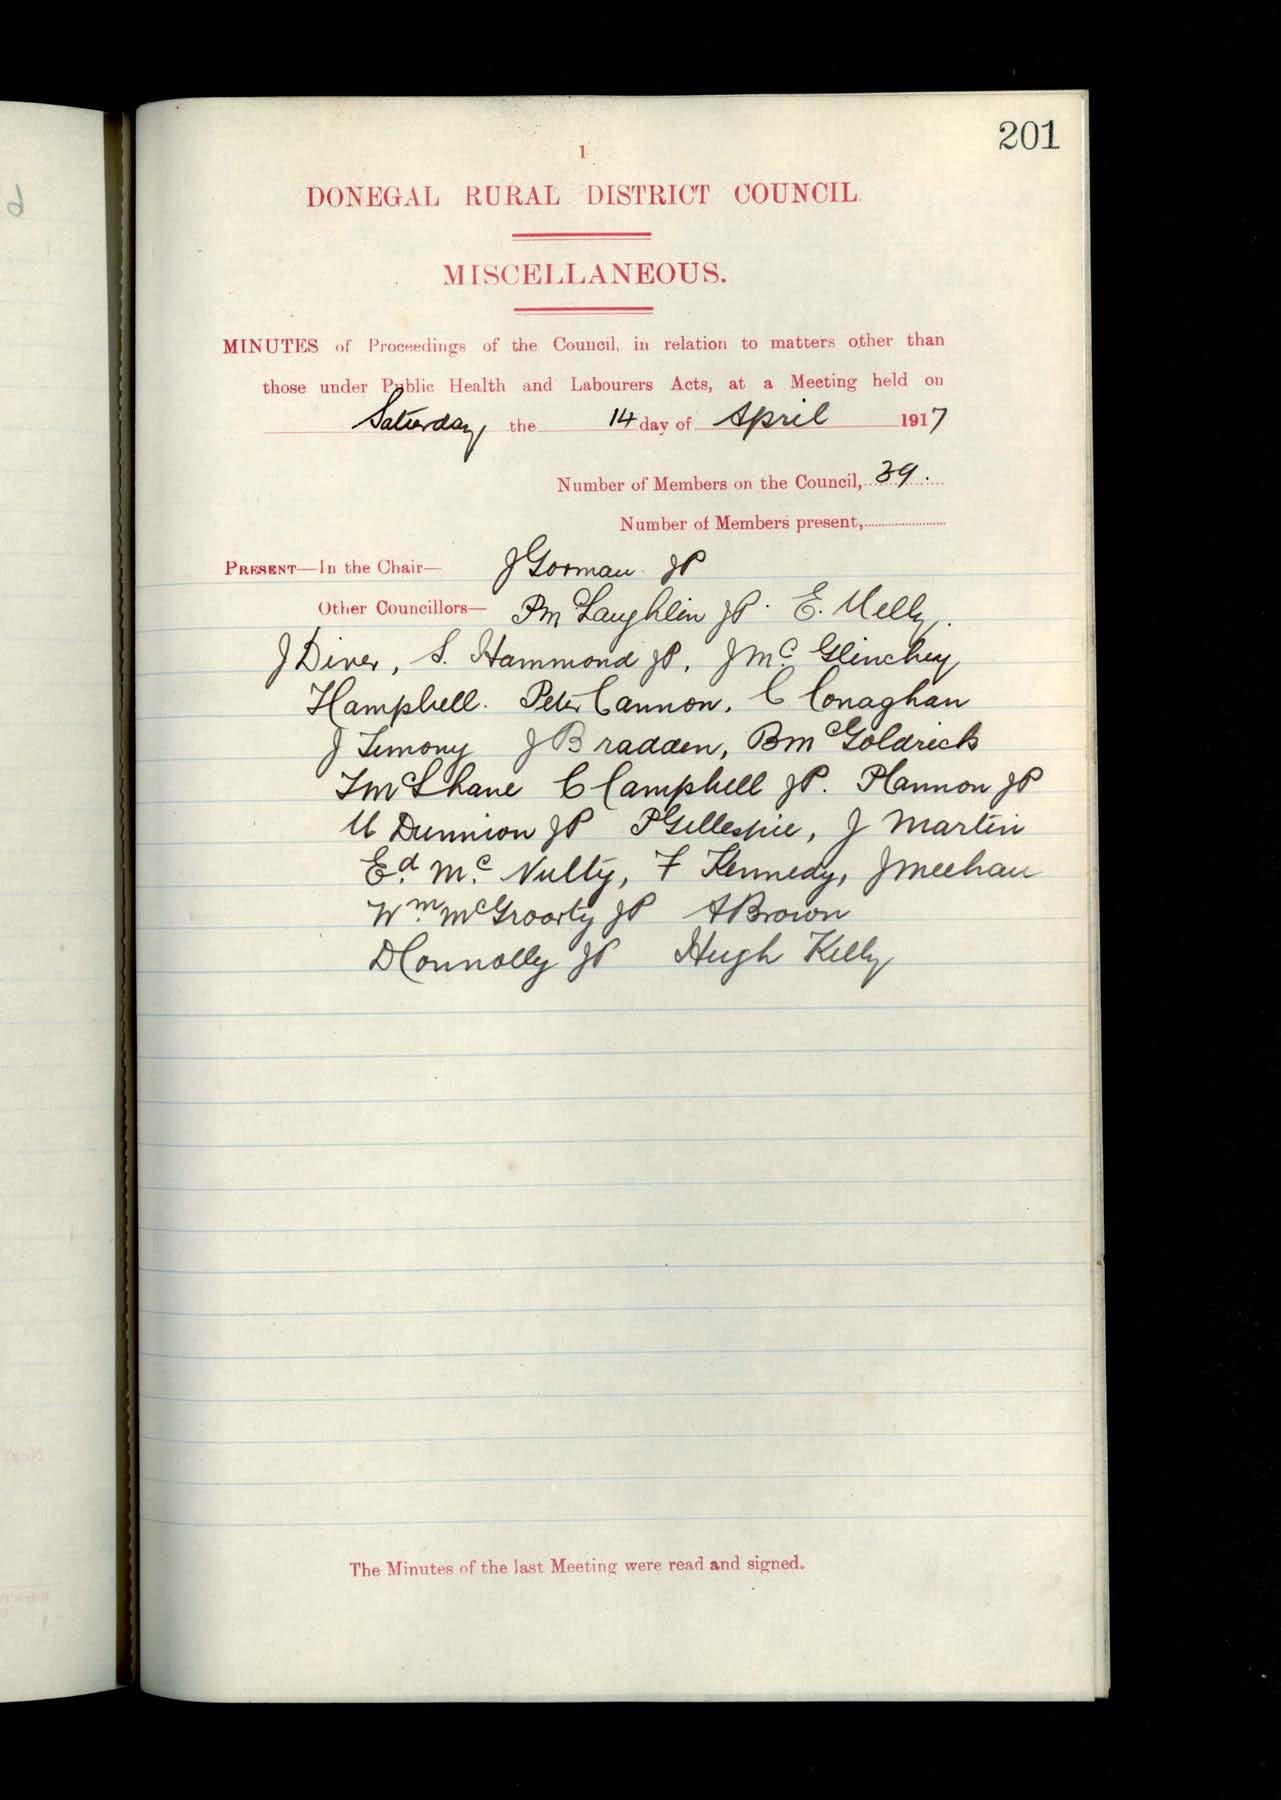 201
1
DONEGAL RURAL DISTRICT COUNCIL.
MISCELLANEOUS.
MINUTES of Proceedings of the Council, in relation to matters other than
those under Public Health and Labourers Acts, at a Meeting held on
Saturday the 14 day of April 1917
Number of Members on the Council, 39.
Number of Members present,
PRESENT—In the Chair— J Gorman JP
Other Councillors— P McLaughlin JP. E. Melly.
J Diver, S. Hammond JP, J Mc Glinchey
H Campbell. Peter Cannon, C Conaghan
J Timony J Bradden, B McGoldrick
T McShane C Campbell JP. P Cannon JP
M Dunnion JP P Gillespie, J Martin
Ed. Mc. Nulty, F Kennedy, J Meehan
Wm. McGroarty JP A Brown
D Connolly JP Hugh Kelly
The Minutes of the last Meeting were read and signed.